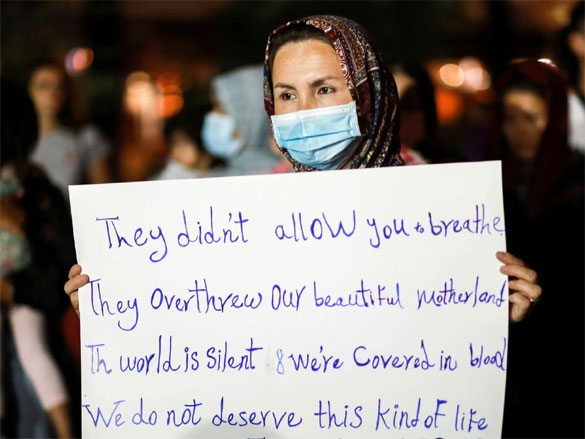 They didn't allow you to breathe
They overthrew our beautiful motherland
Th world is silent & we're covered in blood
We do not deserve this kind of life